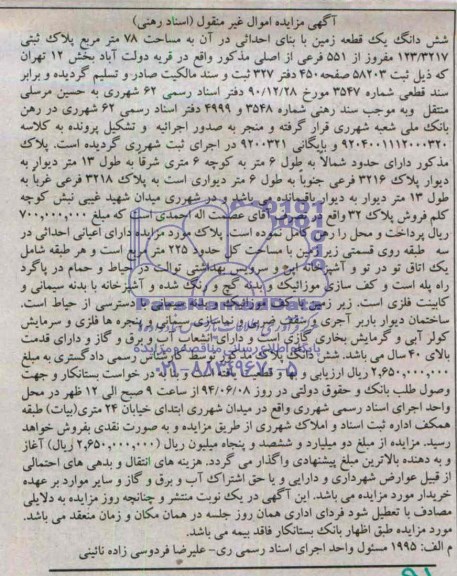 آگهی مزایده اموال غیر منقول (اسناد رهنی)
شش دانگ یک قطعه زمین با بنای احداثی در آن به مساحت ۷۸ متر مربع پلاک ثبتی
۱۲۳/۳۲۱۷ مفروز از ۵۵۱ فرعی از اصلی مذکور واقع در قریه دولت آباد بخش ۱۲ تهران
که ذیل ثبت ۵۸۲۰۳ صفحه۴۵۰ دفتر ۳۲۷ ثبت و سند مالکیت صادر و تسلیم گردیده و برابر
سند قطعی شماره ۳۵۴۷ مورخ ۹۰/۱۲/۲۸ دفتر اسناد رسمی ۶۲ شهرری به حسین مرسلی
منتقل وبه موجب سند رهنی شماره ۳۵۴۸ و ۴۹۹۹ دفتر اسناد رسمی ۶۲ شهرری در رهن
بانک ملی شعبه شهرری قرار گرفته و منجر به صدور اجرائیه و تشکیل پرونده به کلاسه
۹۲۰۴۰۰۱۱۱۲۰۰۰۳۲۰ و بایگانی ۹۲۰۰۳۲۱ در اجرای ثبت شهرری گردیده است. پلاک
مذکور دارای حدود شمالا به طول ۶ متر به کوچه ۶ متری شرقا به طول ۱۳ متر دیوار به
دیوار پلاک ۳۲۱۶ فرعی جنوبا به طول ۶ متر دیواری است به پلاک ۳۲۱۸ فرعی غربا به
طول ۱۳ متر دیوار به دیوار باقیمانده می باشد و در شهرری میدان شهید غیبی نبش کوچه
کلم فروش پلاک ۳۲ واقع در تصرف آقای عصمت اله احمدی است که مبلغ ۷۰۰,۰۰۰,۰۰۰
ریال پرداخت و محل را رهن کامل نموده است. پلاک مورد مزایده دارای اعیانی احداثی در
سه طبقه روی قسمتی زیرزمین با مساحت کل حدود ۲۲۵ متر مربع است و هر طبقه شامل
یک اتاق تو در تو و آشپزخانه اپن و سرویس بهداشتی توالت در حیاط و حمام در پاگرد
راه پله است و کف سازی موزائیک و بدنه گچ و رنگ شده و آشپزخانه با بدنه سیمانی و
کابینت فلزی است. زیر زمین با کف موزائیک و بدنه سیمانی با دسترسی از حیاط است.
ساختمان دیوار باربر آجری و سقف ضربی و نماسازی سیمانی و پنجره ها فلزی و سرمایش
کولر آبی و گرمایش بخاری گازی است و دارای انشعاب آب و برق و گاز و دارای قدمت
بالای ۴۰ سال می باشد. شش دانگ پلاک مذکور توسط کارشناس رسمی دادگستری به مبلغ
۲,۶۵۰,۰۰۰,۰۰۰ ریال ارزیابی و بها و قطعیت یافته است و بنا به در خواست بستانکار و جهت
وصول طلب بانک و حقوق دولتی در روز ۹۴/۰۶/۰۸ از ساعت ۹ صبح الی ۱۲ ظهر در محل
واحد اجرای اسناد رسمی شهرری واقع در میدان شهرری ابتدای خیابان ۲۴ متری(بیات) طبقه
همکف اداره ثبت اسناد و املاک شهرری از طریق مزایده و به صورت نقدی بفروش خواهد
رسید. مزایده از مبلغ دو میلیارد و ششصد و پنجاه میلیون ریال (۲,۶۵۰,۰۰۰,۰۰۰ ریال) آغاز
و به دهنده بالاترین مبلغ پیشنهادی واگذار می گردد. هزینه های انتقال و بدهی های احتمالی
از قبیل عوارض شهرداری و دارایی و یا حق اشتراک آب و برق و گاز و سایر موارد بر عهده
خریدار مورد مزایده می باشد. این آگهی در یک نوبت منتشر و چنانچه روز مزایده به دلایلی
مصادف با تعطیل شود فردای اداری همان روز جلسه در همان مکان و زمان منعقد می باشد.
مورد مزایده طبق اظهار بانک بستانکار فاقد بیمه می باشد.
م الف: ۱۹۹۵ مسئول واحد اجرای اسناد رسمی ری- علیرضا فردوسی زاده نائینی
ParsNamadData
پایگاه اطلاع رسانی مناقصه و مزایده
۰۲۱-۸۸۳۴۹۶۷۰-۵